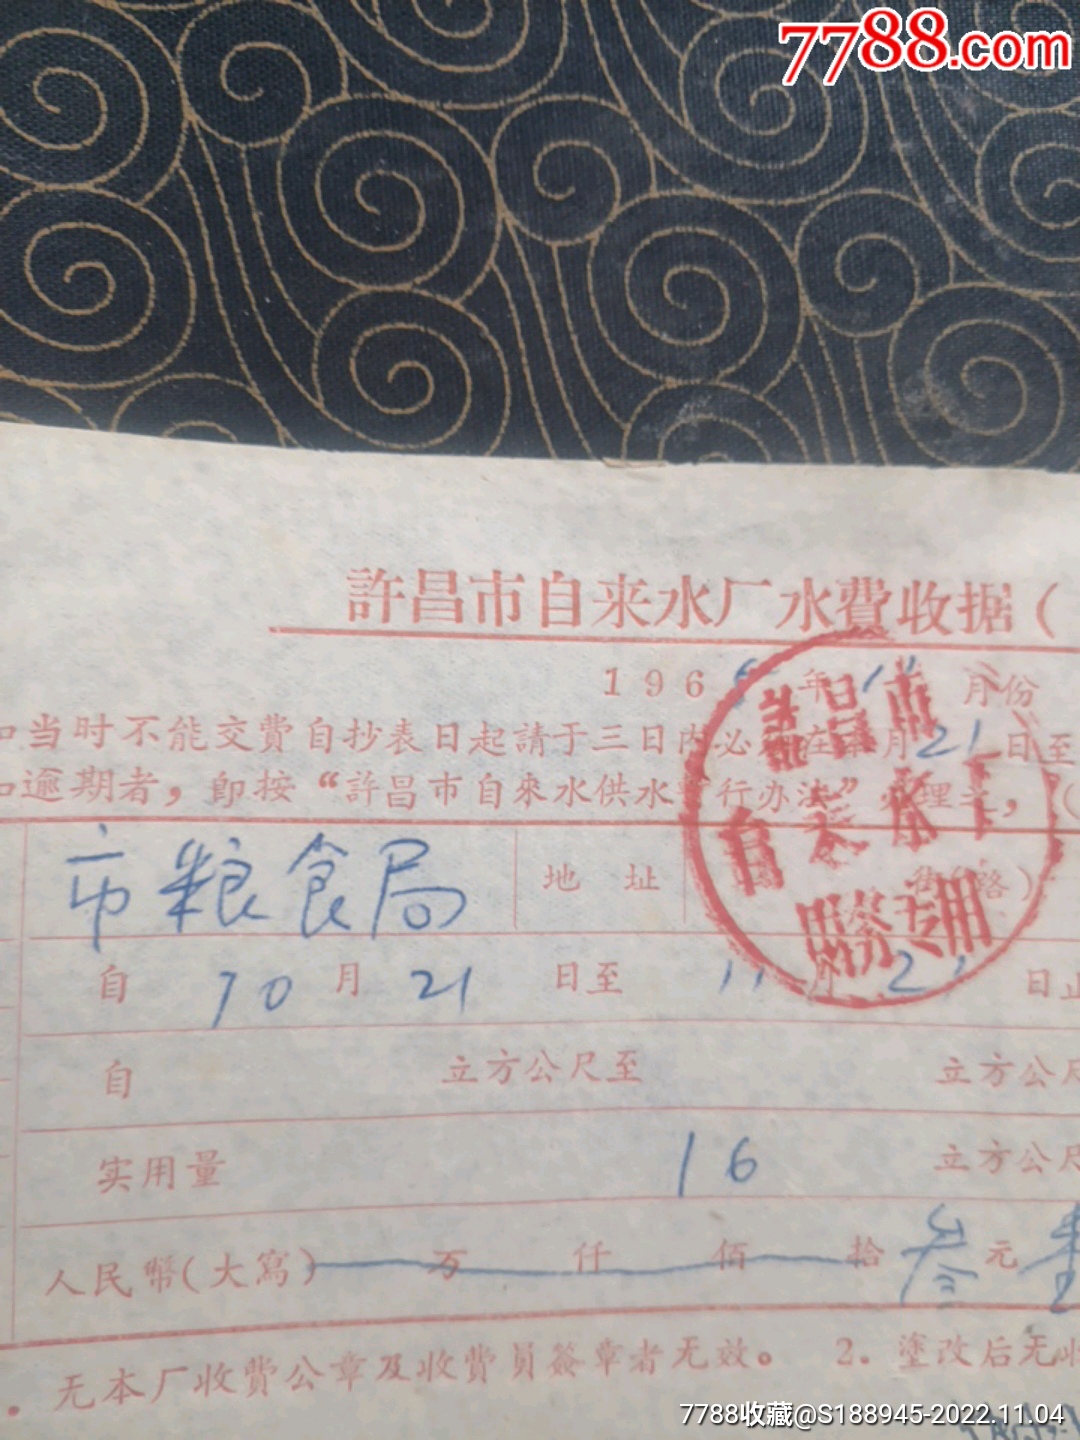 7788.com
許昌市自来水厂水費收据(
196 年 11 月份
当时不能交費自抄表日起請于三日内必 在 月21日至
逾期者，即按“許昌市自來水供水 行办法”办理之，(
市粮食局 地址 街(路)
自 10 月 21 日至 11 月 21 日止
自 立方公尺至 立方公尺
实用量 16 立方公尺
人民幣(大寫) 万 仟 佰 拾 叁 元
无本厂收費公章及收費員簽章者无效。 2. 塗改后无
許昌市
自来水厂
財务专用
7788收藏@S188945-2022.11.04